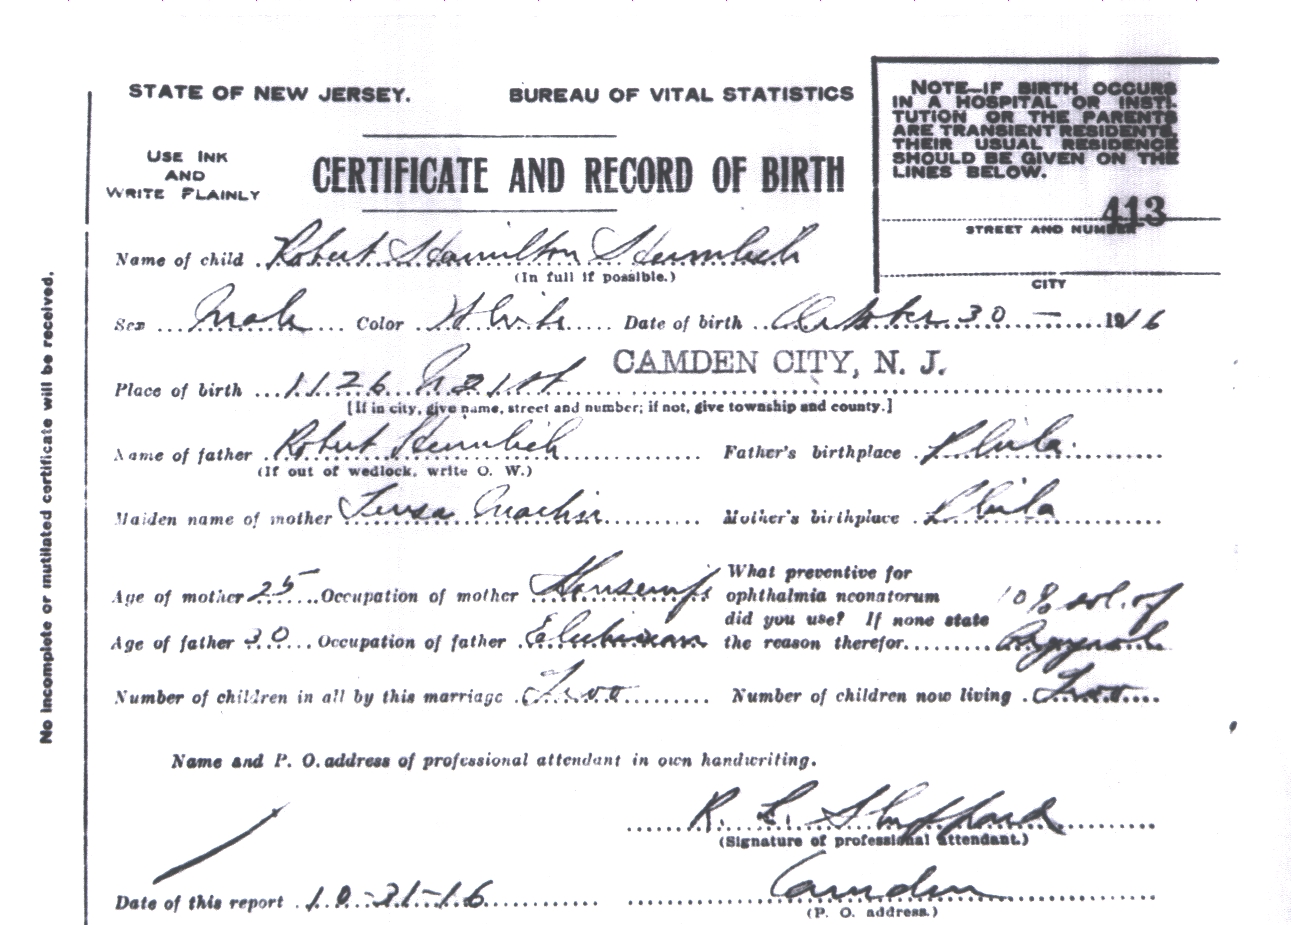 STATE OF NEW JERSEY. BUREAU OF VITAL STATISTICS
NOTE—IF BIRTH OCCURS
IN A HOSPITAL OR INSTI-
TUTION OR THE PARENTS
ARE TRANSIENT RESIDENTS,
THEIR USUAL RESIDENCE
SHOULD BE GIVEN ON THE
LINES BELOW.
413
STREET AND NUMBER
CITY
USE INK
AND
WRITE PLAINLY
CERTIFICATE AND RECORD OF BIRTH
No incomplete or mutilated certificate will be received.
Name of child Robert Hamilton
(In full if possible.)
Sex Male Color White Date of birth October 30 — 1916
CAMDEN CITY, N. J.
Place of birth 1126 N 21st
[If in city, give name, street and number; if not, give township and county.]
Name of father Robert Father's birthplace Phila.
(If out of wedlock, write O. W.)
Maiden name of mother Mother's birthplace Phila
Age of mother 25 Occupation of mother Housewife What preventive for
ophthalmia neonatorum
did you use? If none state
the reason therefor 10% sol. of
Argyrol
Age of father 30 Occupation of father Electrician
Number of children in all by this marriage Two Number of children now living Two
Name and P. O. address of professional attendant in own handwriting.
R. L. Sheppard
(Signature of professional attendant.)
Date of this report 10-31-16 Camden
(P. O. address.)